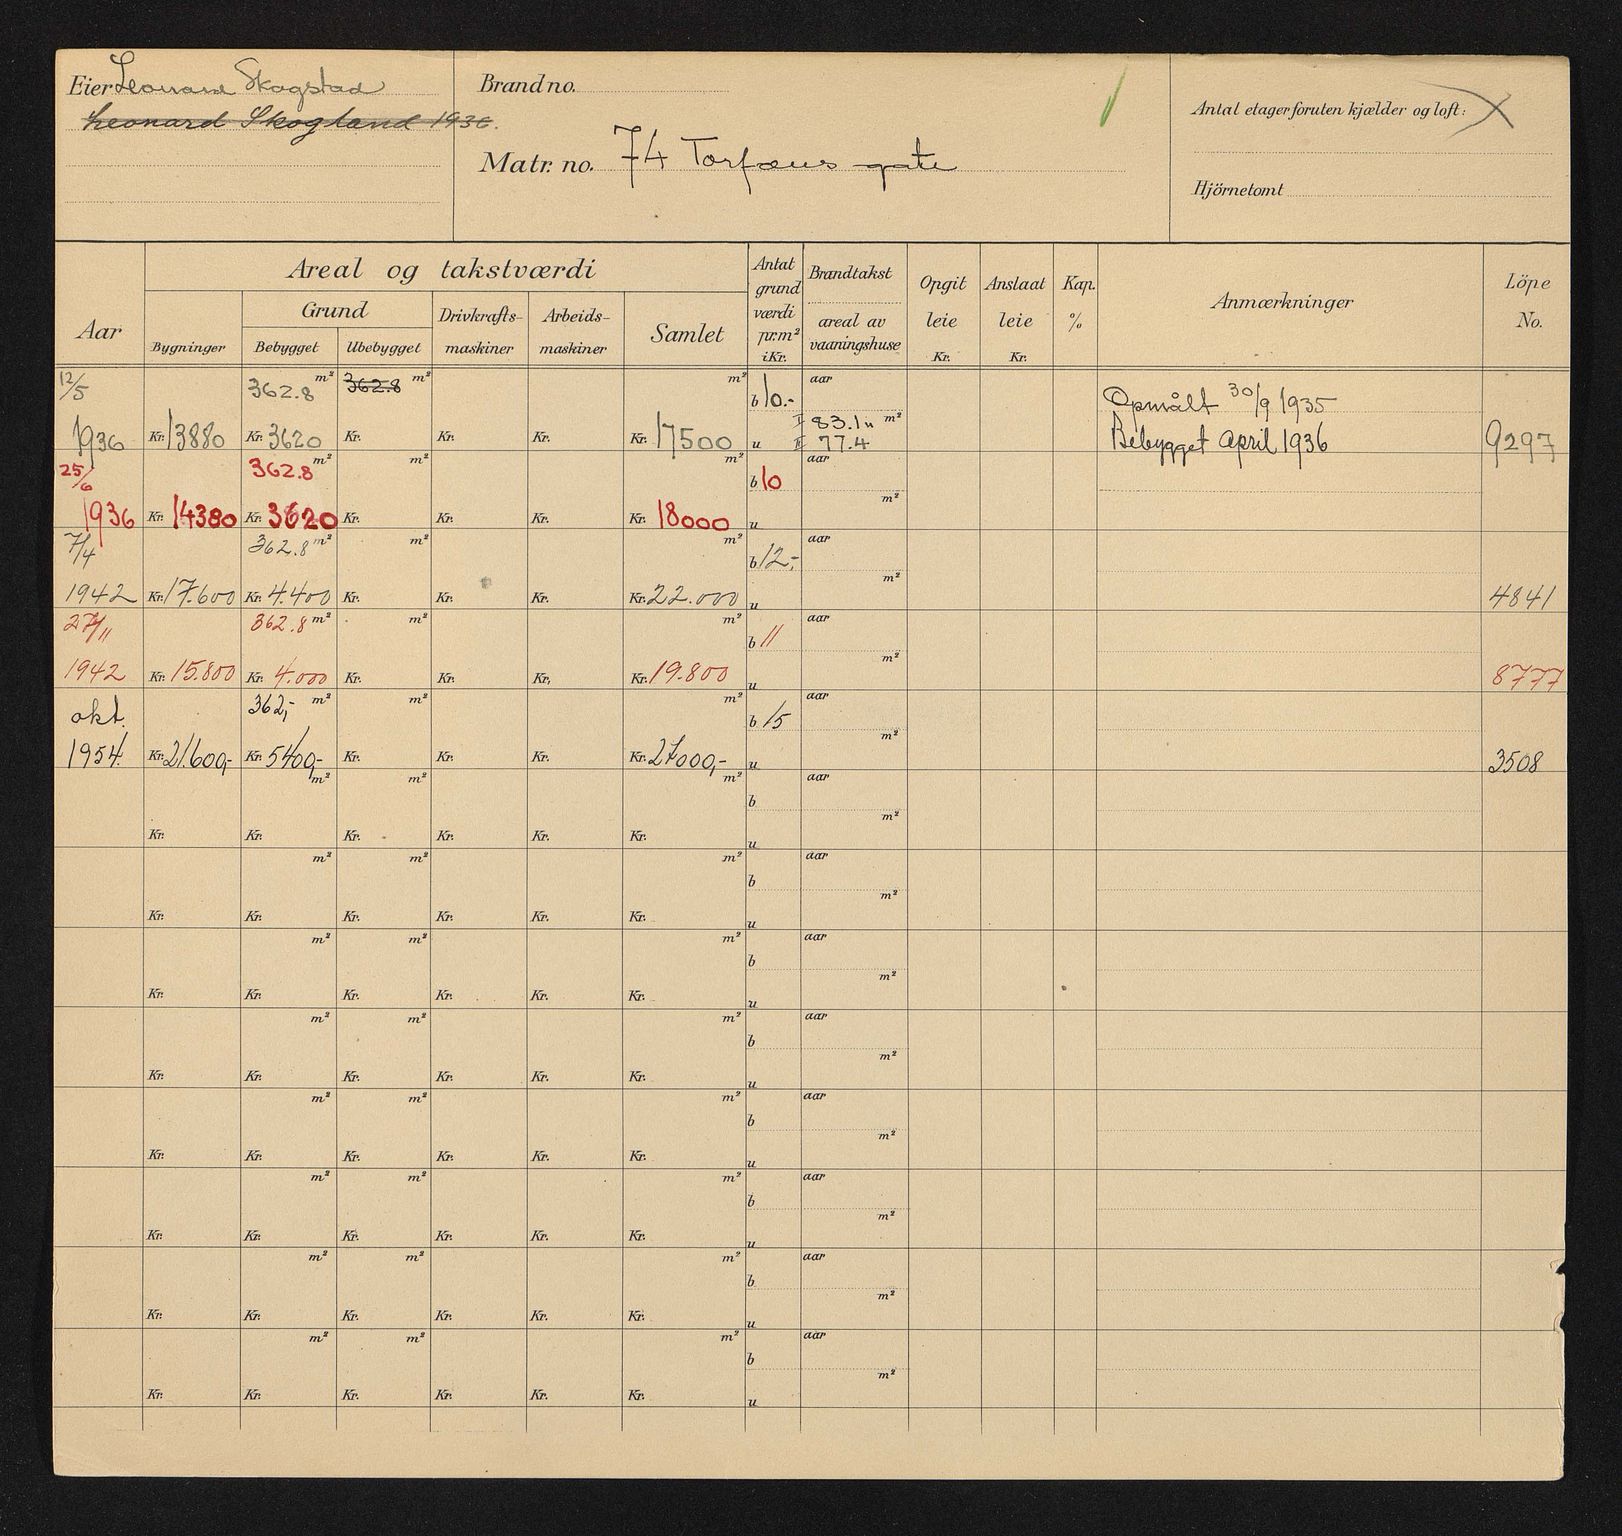 Eier Leonard Skogstad
Leonard Skogland 1936.
Brand no.
Matr. no. 74 Torfæus gate
Antal etager foruten kjælder og loft:
Hjörnetomt
Aar
Areal og takstværdi
Grund
Bygninger
Bebygget
Ubebygget
Drivkrafts-
maskiner
Arbeids-
maskiner
Samlet
Antat
grund
værdi
pr. m²
i Kr.
Brandtakst
areal av
vaaningshuse
Opgit
leie
Kr.
Anslaat
leie
Kr.
Kap.
%
Anmærkninger
Löpe
No.
12/5 362.8 m² 362.8 m² m² b 10.- aar Opmålt 30/9 1935
I 83.1 m²
1936 Kr. 13880 Kr. 3620 Kr. Kr. Kr. Kr. 17500 u II 77.4 Bebygget April 1936 9297
25/6 362.8 m² m² m² b 10 aar
m²
1936 Kr. 14380 Kr. 3620 Kr. Kr. Kr. Kr. 18000 u
7/4 362.8 m² m² m² b 12,- aar
m²
1942 Kr. 17.600 Kr. 4.400 Kr. Kr. Kr. Kr. 22.000 u 4841
27/11 362.8 m² m² m² b 11 aar
m²
1942 Kr. 15.800 Kr. 4.000 Kr. Kr. Kr. Kr. 19.800 u 8777
okt. 362,- m² m² m² b 15 aar
m²
1954. Kr. 21.600,- Kr. 5400,- Kr. Kr. Kr. Kr. 27000,- u 3508
m² m² m² b aar
m²
Kr. Kr. Kr. Kr. Kr. Kr. u
m² m² m² b aar
m²
Kr. Kr. Kr. Kr. Kr. Kr. u
m² m² m² b aar
m²
Kr. Kr. Kr. Kr. Kr. Kr. u
m² m² m² b aar
m²
Kr. Kr. Kr. Kr. Kr. Kr. u
m² m² m² b aar
m²
Kr. Kr. Kr. Kr. Kr. Kr. u
m² m² m² b aar
m²
Kr. Kr. Kr. Kr. Kr. Kr. u
m² m² m² b aar
m²
Kr. Kr. Kr. Kr. Kr. Kr. u
m² m² m² b aar
m²
Kr. Kr. Kr. Kr. Kr. Kr. u